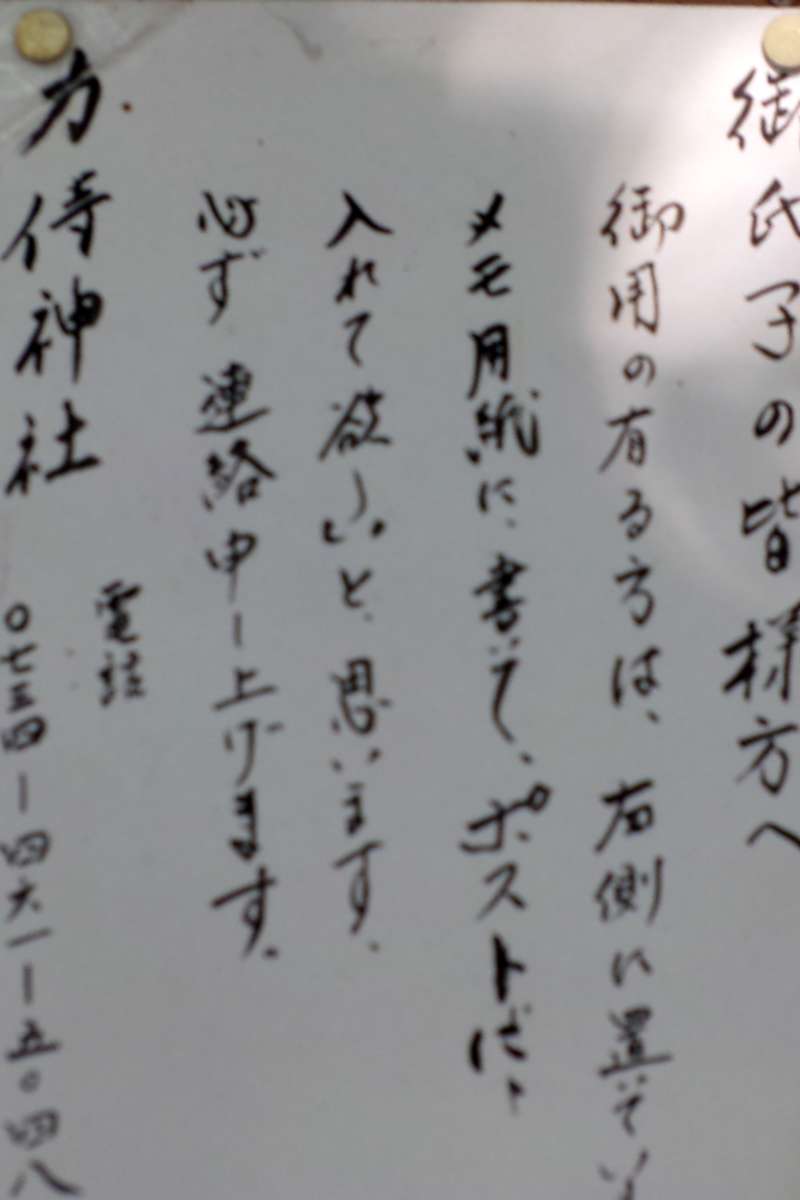 御氏子の皆様方へ
御用の有る方は、右側に置いてい
メモ用紙に書いて、ポストに、
入れて欲しいと思います。
必ず連絡申し上げます。
力侍神社
電話
〇七三四ー四六一ー五〇四八